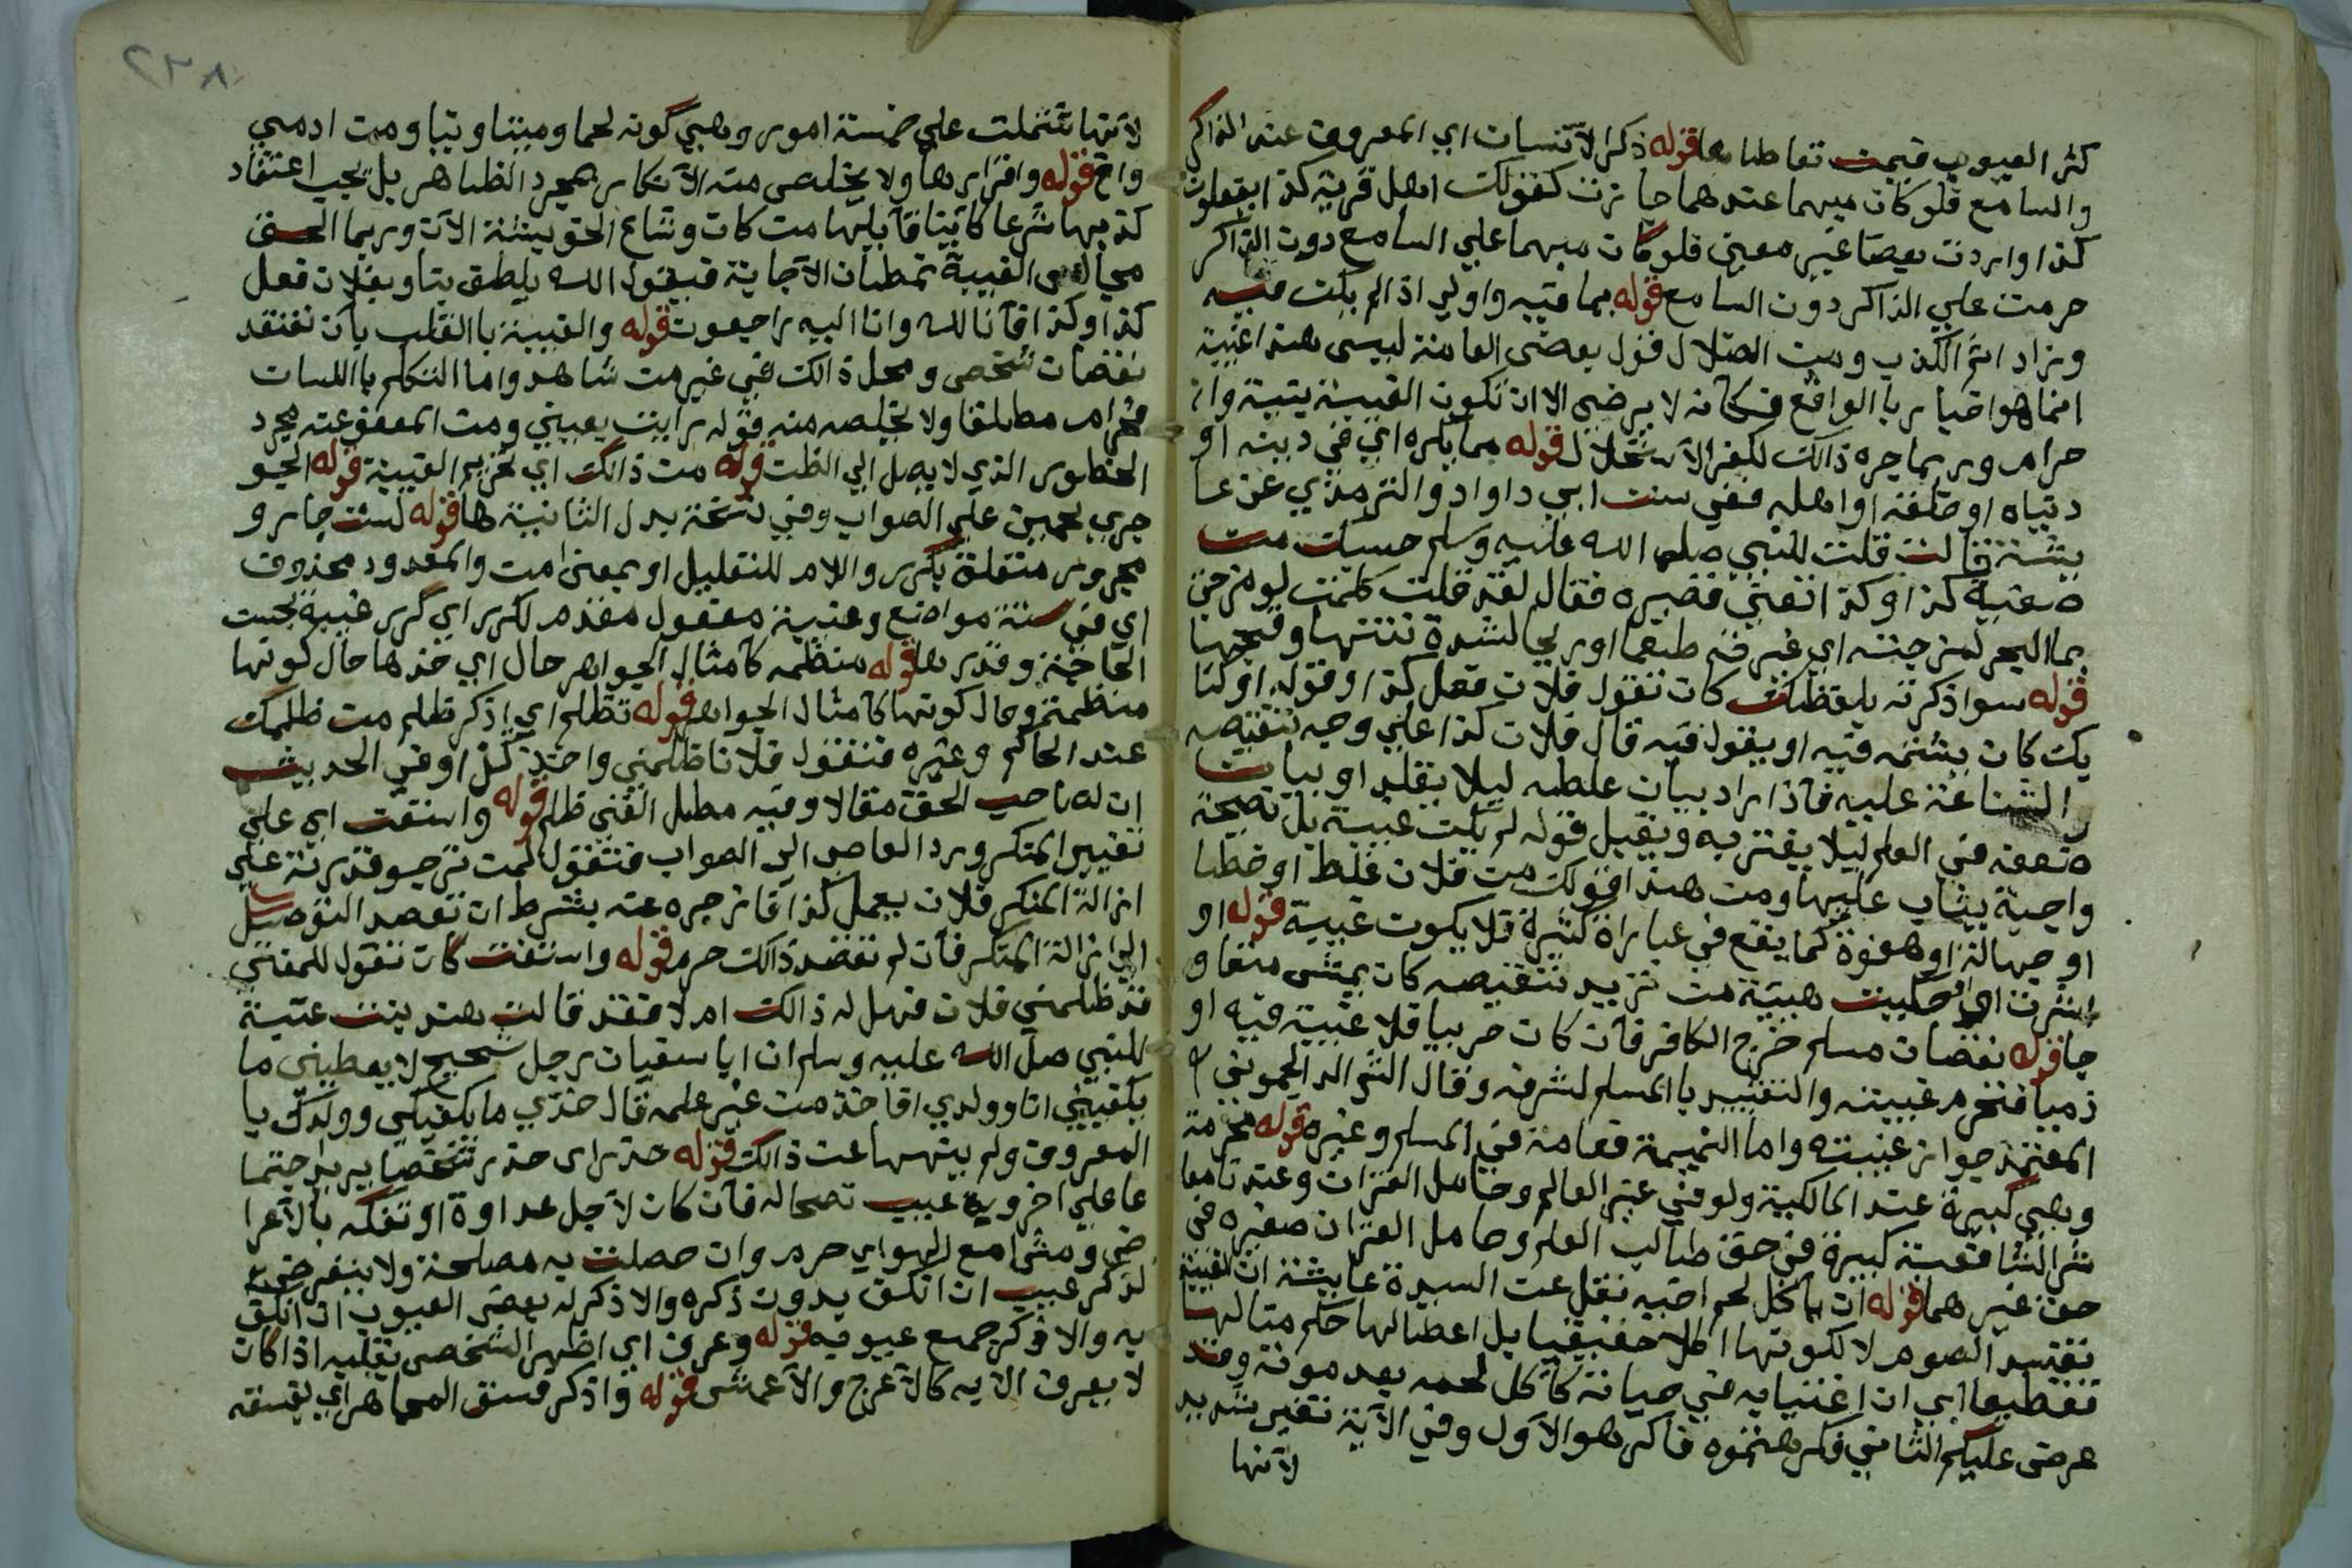 كثر العيوب فيمن تعاطاها قوله ذكر الانسان اي المعروف عند الذاكر
والسامع فلو كان مبهما عندهما جاز كقولك اهل قرية كذا يفعلون
كذا واردت بعضا غير معين فلو كان مبهما علي السامع دون الذاكر
حرمت علي الذاكر دون السامع قوله بما فيه واولي اذا لم يكن فيه
وزاد اثم الكذب ومن الضلال قول بعض العامة ليس هذا غيبة
انما هو اخبار بالواقع فكانه لا يرضي الا ان تكون الغيبة
حرام وربما جره ذالك لكفر الاستحلال قوله مما يكره اي في دينه او
دنياه او خلقه او اهله ففي سنن ابي داواد والترمذي عن عا
يشة قالت قلت للنبي صلي الله عليه وسلم حسبك من
صفية كذا وكذا تعني قصيره فقال لقد قلت كلمة لو مزجت
بماالبحر لمزجته اي غير فيه طبعها او ريحا لشدة نتنها وقبحها
قوله سوا ذكرته بلفظك كان تقول فلان فعل كذا وقوله او كنا
يك كان يشتمه فيه او يقول فيه قال فلان كذا علي وجه تنقيصه
والشناعة عليه فاذا اراد بيان غلطه ليلا يقلد او بيان
ضعفه في العلم ليلا يغتر به ويقبل قوله لم يكن غيبة بل نصيحة
واجبة يثاب عليها ومن هذا قولك من فلان غلط او خطا
او جهالة او هفوة كما يقع في عبارات كثيرة فلا يكون غيبة قوله او
اشرت اي حكيت هيئة من تريد تنقيصه كان يمشي متعاو
جا قوله نقصان مسلم خرج الكافر فان كان حربيا فلا غيبة فيه او
ذميا فتحرم غيبته والتقييد بالمسلم لشرفه وقال الشيخ الملوي
المعتمد جواز غيبته واما النميمة فعامة في المسلم وغيره قوله محرمة
وهي كبيرة عند المالكية ولو في غير العالم وحامل القران وعند نا معا
شر الشافعية كبيرة في حق طالب العلم وحامل القران صغيره في
حق غيرهما قوله ان ياكل لحم اخيه نقل عن السيدة عايشة ان الغيبة
تفسد الصوم لا لكونها اكلا حقيقيا بل اعطالها حكم مثالها
تفظيعا اي ان اغتيابه في حياته كاكل لحمه بعد موته وقد
عرض عليكم الثاني فكرهتموه فاكرهوا الاول وفي الاية تنفير شديد
لانها
٢٣٨
لانها اشتملت علي خمسة امور وهي كونه لحما وميتا ونيا ومن ادمي
واخ قوله واقرارها ولا يخلص منه الانكار بمجرد الظاهر بل يجب اعتقاد
كذبها شرعا كاينا قايلها من كان وشاع الحق بيننة الان وربما الحق
مجالس الغيبة بمظان الاجابة فيقول الله يلطف بنا وبفلان فعل
كذا وكذا فانا لله وانا اليه راجعون قوله والغيبة باالقلب بان تعتقد
نقصان شخص ومحل ذالك في غير من شاهد واما التكلم باللسان
فحرام مطلقا ولا يخلصه منه قوله رايت بعيني ومن المعفو عنه مجرد
الخطور الذي لا يصل الي الظن قوله من ذالك اي تحريم الغيبة قوله الجو
جري بجيمين علي الصواب وفي نسخة بدل الثانية ها قوله لست جار و
مجرور متعلق بكرر واللام للتقليل او بمعني من والمعدود محذوف
اي في ستة مواضع وغيبة مفعول مقدم لكرر اي كرر غيبة بحسب
الحاجة وقدرها قوله منظمه كامثال الجواهر حال اي خذها حال كونها
منظمة وحال كونها كامثال الجواهر قوله تظلم اي اذكر ظلم من ظلمك
عند الحاكم وغيره فتقول فلانا ظلمني واخذ كذا وفي الحديث
ان لصاحب الحق مقالا وفيه مطل الغني ظلم قوله واستعن اي علي
تغيير المنكر ورد العاصي الي الصواب فتقول لمن ترجو قدرته علي
ازالة المنكر فلان يعمل كذا فازجره عنه بشرط ان تقصد التوصل
الي ازالة المنكر فان لم تقصد ذالك حرم قوله واستفت كان تقول للمفتي
قد ظلمني فلان فهل له ذالك ام لا فقد قالت هند بنت عتبة
للنبي صلي الله عليه وسلم ان ابا سفيان رجل شحيح لا يعطيني ما
يكفيني انا وولدي افاخذ من غير علمه قال خذي ما يكفيكي وولدك با
المعروف ولم ينهها عن ذالك قوله حذر اي حذر شخصا يريد اجتما
عا علي اخر ويه عيب نصحا له فان كان لاجل عداوة او تفكه بالاعرا
ض ومشيا مع الهواي حرم وان حصلت به مصلحة ولا بد في
لذكر عيب ان انكف بدون ذكره والا ذكر له بعض العيوب ان انكف
به والا ذكر جميع عيوبه قوله وعرف اي اظهر الشخص بقلبه اذا كان
لا يعرف الا به كالاعرج والاعمش قوله واذكر فسق المجاهر اي بفسقه